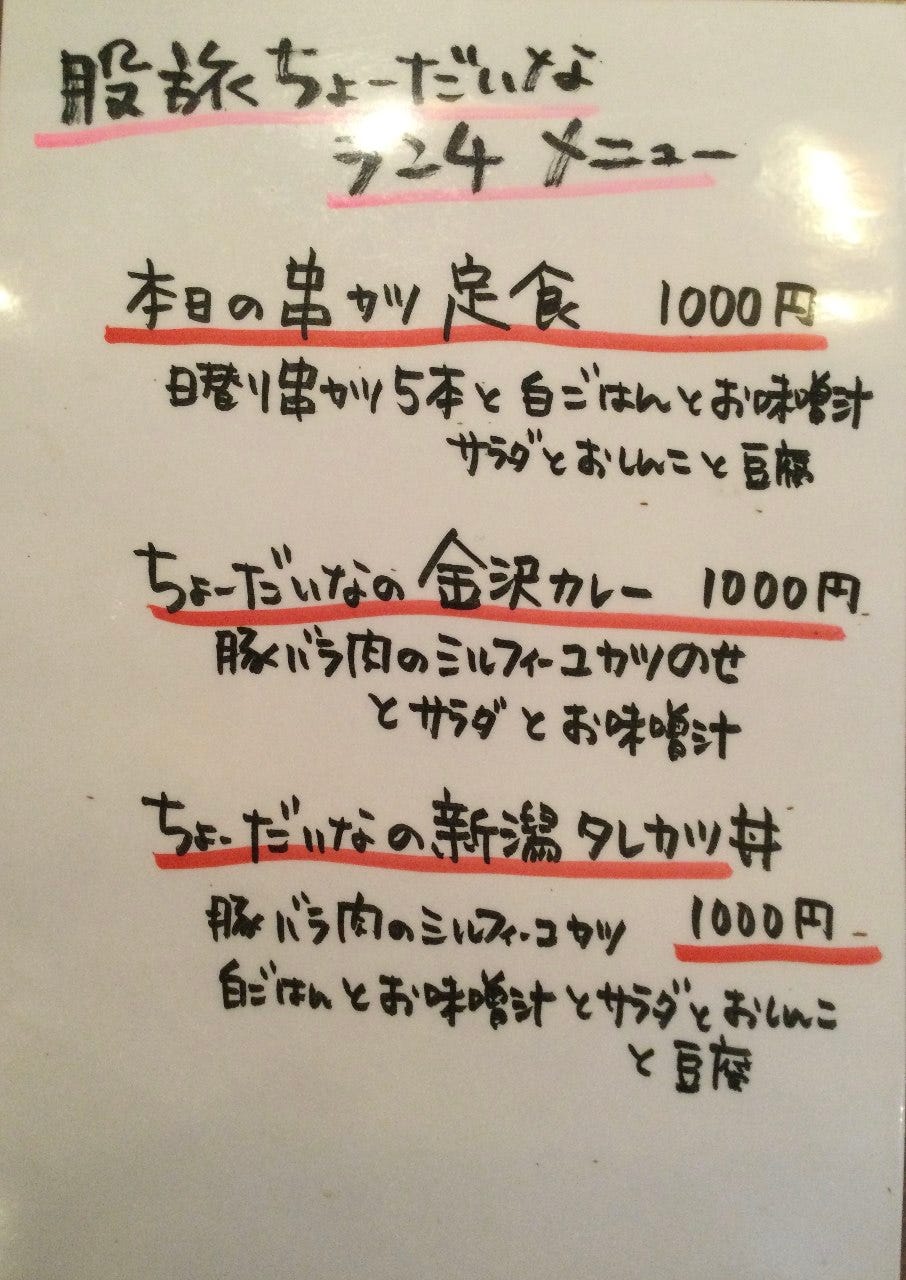 股旅ちょーだいな
ランチ メニュー
本日の串カツ定食 1000円
日替り串カツ5本と白ごはんとお味噌汁
サラダとおしんこと豆腐
ちょーだいなの金沢カレー 1000円
豚バラ肉のミルフィーユカツのせ
とサラダとお味噌汁
ちょーだいなの新潟タレカツ丼
豚バラ肉のミルフィーユカツ 1000円
白ごはんとお味噌汁とサラダとおしんこ
と豆腐